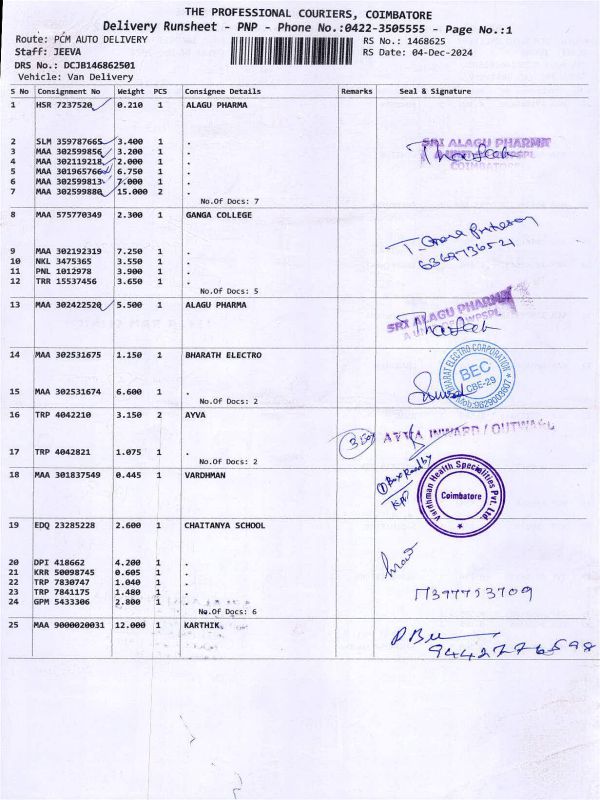 THE PROFESSIONAL COURIERS, COIMBATORE
Delivery Runsheet - PNP - Phone No.:0422-3505555 - Page No.:1
Route: PCM AUTO DELIVERY
RS No.: 1468625
Staff: JEEVA
RS Date: 04-Dec-2024
DRS No.: DCJB146862501
Vehicle: Van Delivery
S No Consignment No Weight PCS Consignee Details Remarks Seal & Signature
1 HSR 7237520 0.210 1 ALAGU PHARMA
2 SLM 359787665 3.400 1 .
3 MAA 302599856 3.200 1 .
4 MAA 302119218 2.000 1 .
5 MAA 301965766 6.750 1 .
6 MAA 302599813 7.000 1 .
7 MAA 302599880 15.000 2 .
No.Of Docs: 7
SRI ALAGU PHARMA
COIMBATORE
8 MAA 575770349 2.300 1 GANGA COLLEGE
9 MAA 302192319 7.250 1 .
10 NKL 3475365 3.550 1 .
11 PNL 1012978 3.900 1 .
12 TRR 15537456 3.650 1 .
No.Of Docs: 5
13 MAA 302422520 5.500 1 ALAGU PHARMA
SRI ALAGU PHARMA
14 MAA 302531675 1.150 1 BHARATH ELECTRO
15 MAA 302531674 6.600 1 .
No.Of Docs: 2
BHARAT ELECTRO CORPORATION
BEC
CBE-29
16 TRP 4042210 3.150 2 AYVA
17 TRP 4042821 1.075 1 .
No.Of Docs: 2
AYVA INWARD / OUTWARD
18 MAA 301837549 0.445 1 VARDHMAN
Vardhman Health Specialities Pvt. Ltd
Coimbatore
19 EDQ 23285228 2.600 1 CHAITANYA SCHOOL
20 DPI 418662 4.200 1 .
21 KRR 50098745 0.605 1 .
22 TRP 7830747 1.040 1 .
23 TRP 7841175 1.480 1 .
24 GPM 5433306 2.800 1 .
No.Of Docs: 6
25 MAA 9000020031 12.000 1 KARTHIK